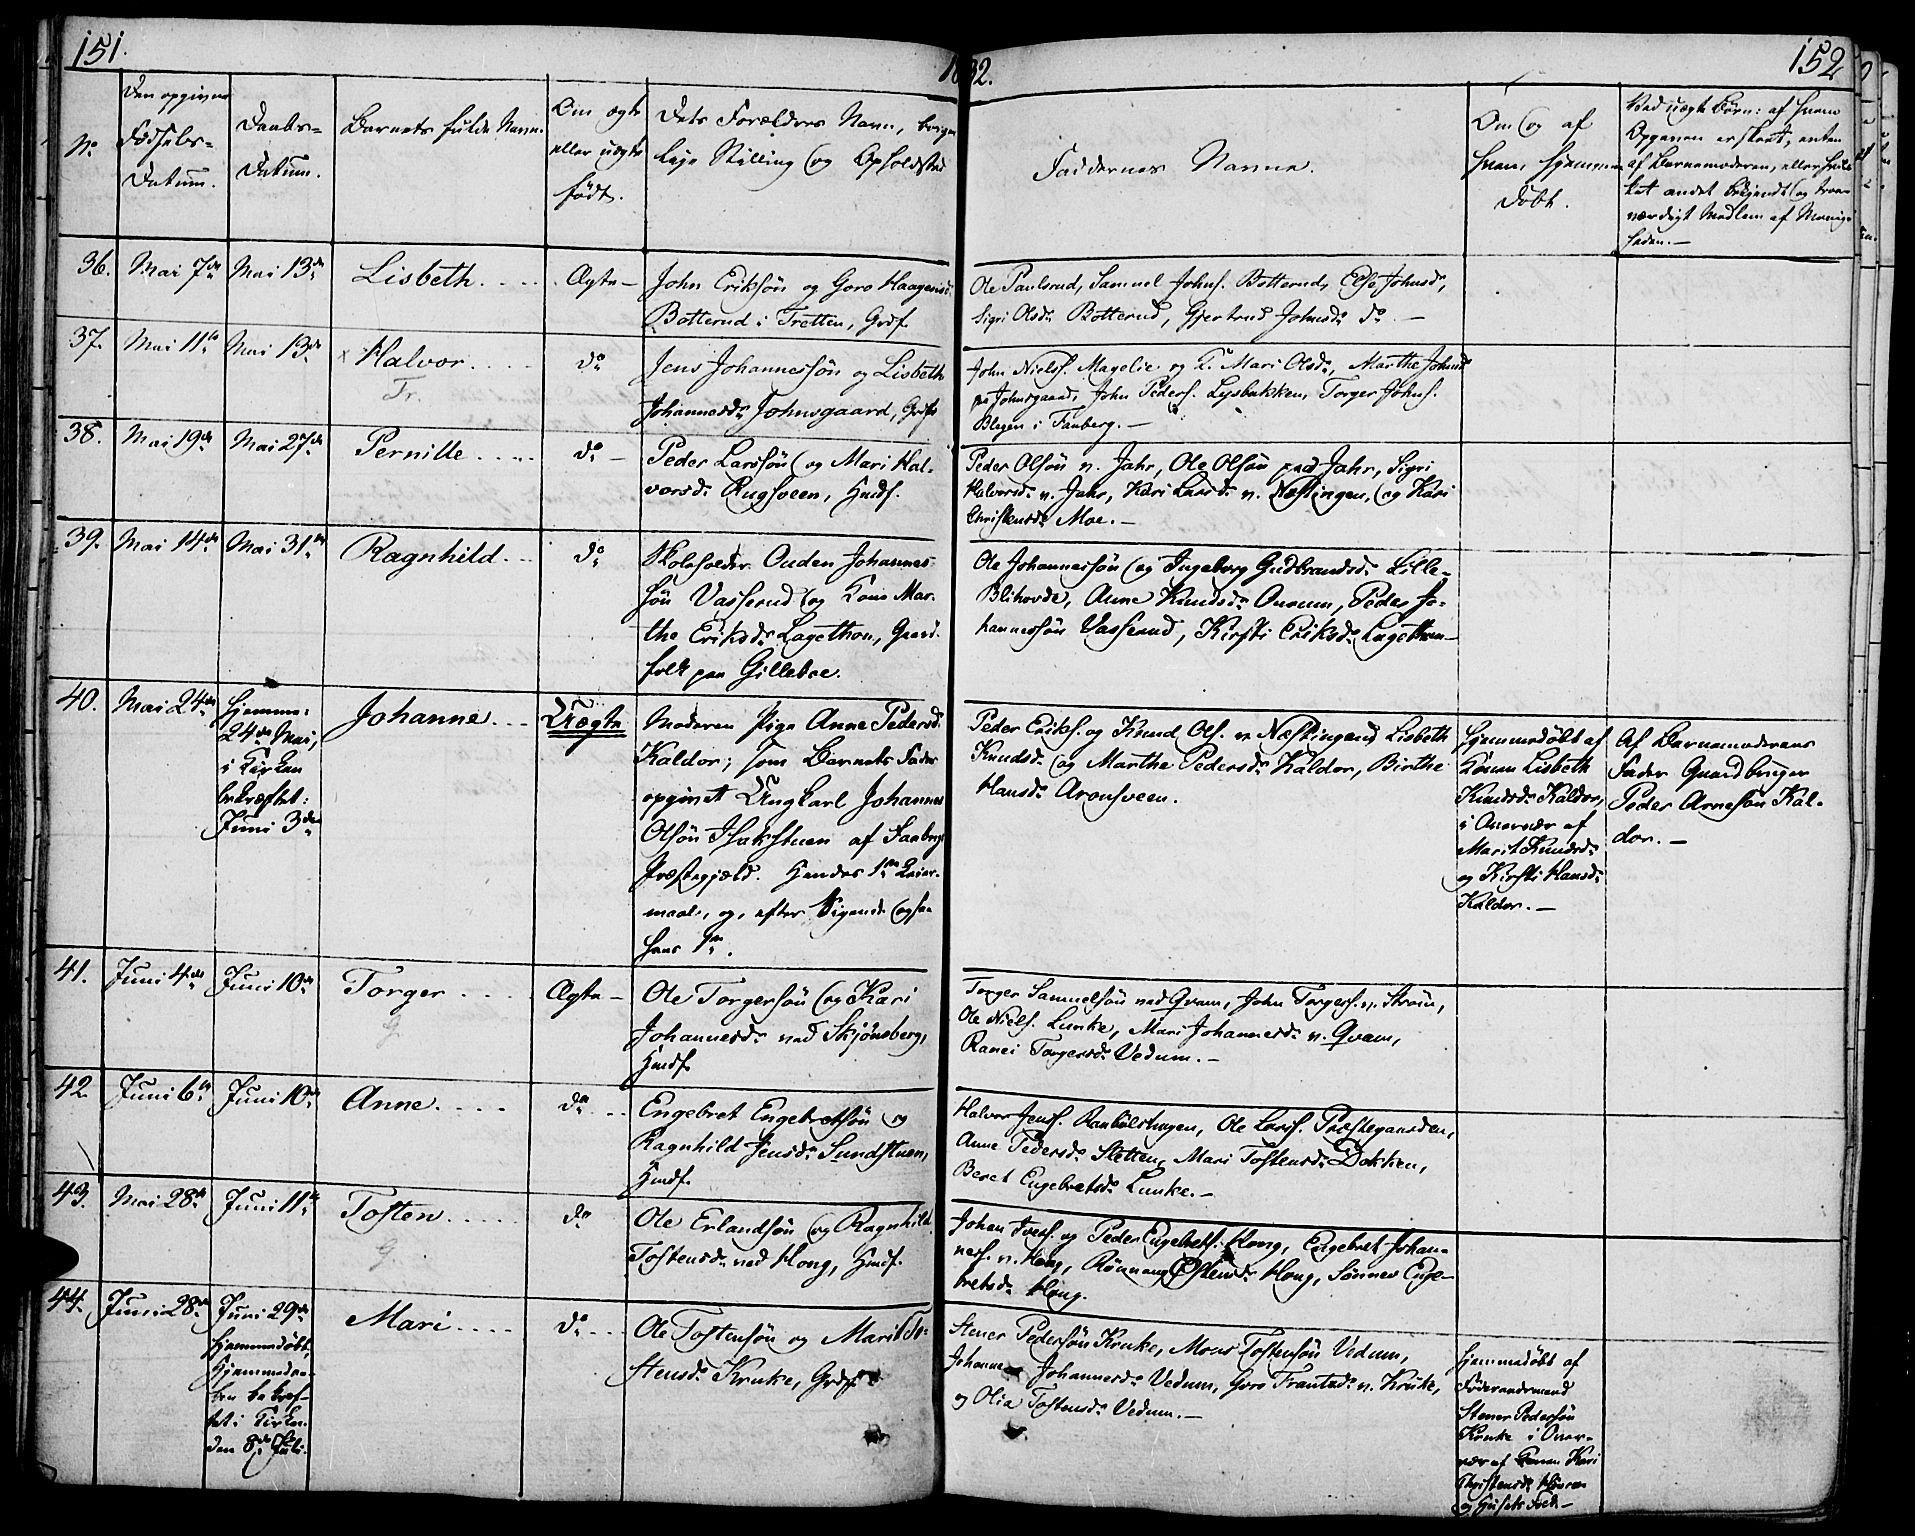 151.
1832.
152
No
Den opgivne
Fødsels-
Datum.
Daabs-
Datum.
Barnets fulde Navn.
Om ægte
eller uægte
født.
Dets Forældres Navn, borger-
lige Stilling og Opholdsted
Faddernes Navne.
Om og af
hvem hjemme-
døbt.
Ved uægte Børn: af hvem
Opgaven er skeet, enten
af Barnemoderen, eller hvil-
ket andet bekjendt og trov-
værdigt Medlem af Menig-
heden.—
36. Mai 7de Mai 13de Lisbeth.... Ægte—
John Eriksøn og Goro Haagensd.
Botterud i Tretten, Grdf.
Ole Paulsrud, Samuel Johns. Botterud, Else Johnsd.,
Sigri Olsdr Botterud, Gjertrud Johnsdr do.—
37. Mai 11te Mai 13de Halvor.... do
Tr.
Jens Johannessøn og Lisbeth
Johannesdr Johnsgaard, Grdf.
John Niels. Magelie og K. Mari Olsdr, Marthe Johnsd
paa Johnsgaard, John Peders. Lysbakken, Torger Johns.
Blegen i Faaberg.—
38. Mai 19de Mai 27de Pernille.... do—
Peder Larssøn og Mari Hal-
vorsdr Rugsveen, Huusf.
Peder Olsøn n. Jahr, Ole Olsøn ved Jahr, Sigri
Halvorsdr n. Jahr, Kari Larsdr n. Næstingen, og Kari
Christensdr Moe.—
39. Mai 14de Mai 31te Ragnhild... do
Skoleholder Ouden Johannes-
søn Vasserud og Kone Mar-
the Eriksdr Lagethon, Gaard-
folk paa Gilleboe.
Ole Johannessøn og Ingeborg Gudbrandsdr Lille-
Blihovde, Anne Knudsdr Onsum, Peder Jo-
hannessøn Vasserud, Kirsti Eriksdr Lagethon—
40. Mai 24de
Hjemme:
24de Mai,
i Kirken
bekræftet:
Juni 3die
Johanne... Uægte
Moderen Pige Anne Pedersd.
Kaldor; som Barnets Fader
opgivet Ungkarl Johannes
Olsøn Isakstuen af Faabergs
Præstegjæld. Hendes 1te Leier-
maal, og, efter Sigende ogsaa
hans 1te.
Peder Eriks. og Knud Ols. n. Næstingen, Lisbeth
Knudsdr og Marthe Pedersdr Kaldor, Birthe
Hansdr Aronsveen.
Hjemmedøbt af
Konen Lisbeth
Knudsdr Kaldor,
i Overvær af
Marit Knudsdr
og Kirsti Hansdr
Kaldor.—
Af Barnemoderens
Fader Gaardbruger
Peder Arnesøn Kal-
dor.—
41. Juni 4de Juni 10de Torger.... Ægte—
G.
Ole Torgersøn og Kari
Johannesdr ved Skjønsberg,
Huusf.
Torger Samuelsøn ved Qvam, John Torgers. n. Strøm,
Ole Niels. Lunke, Mari Johannesdr n. Qvam,
Ranei Torgersdr Vedum.—
42. Juni 6te Juni 10de Anne.... do...
Engebret Engebretsøn og
Ragnhild Jensdr Sundstuen,
Huusf.
Halvor Jens. Ranbølshagen, Ole Lars. Præstegaarden,
Anne Pedersdr Sletten, Mari Tostensdr Dokken,
Beret Engebretsdr Lunke.—
43. Mai 28de Juni 11te Tosten..... do
G.
Ole Erlandsøn og Ragnhild
Tostensdr ved Hong, Huusf.
Johan Ivers. og Peder Engebrets. Hong, Engebret Johan-
ness. n. Hong, Rønnaug Ostensdr Hong, Sønnev Enge-
bretsdr Hong.
44. Juni 28de
Juni 29de
hjemmedøbt,
Hjemmedaa-
ben bekræf-
tet i Kirken
den 8de Juli.
Mari.... do...
Ole Tostensøn og Marit To-
stensdr Kruke, Grdf.
Stener Pedersøn Kruke, Mons Tostensøn Vedum,
Johanne Johannesdr Vedum, Goro Frantsdr n. Kruke,
og Olia Tostensdr Vedum.—
Hjemmedøbt af
Føderaadsmand
Stener Pedersøn
Kruke i Over-
vær af Konen Kari
Christensdr
og Huusets Folk—